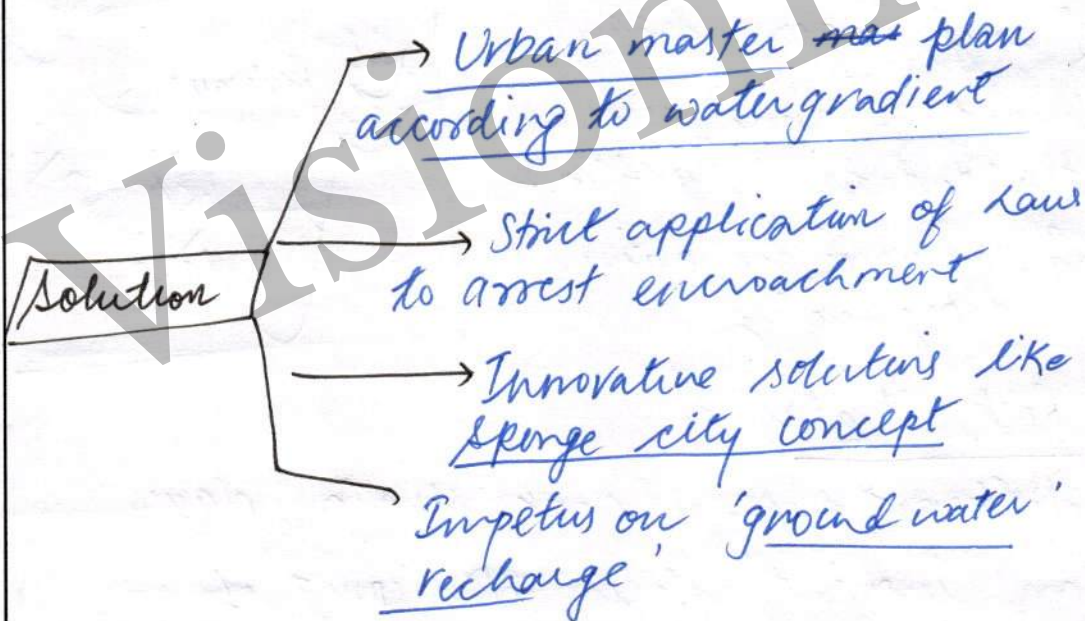 Urban master plan
according to water gradient
Strict application of Laws
to arrest encroachment
Solution
Innovative solutions like
sponge city concept
Impetus on 'ground water'
recharge'